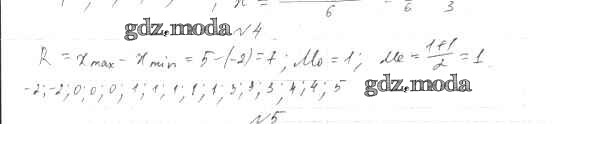 6 6 3
gdz.moda №4
R = x max - x min = 5-(-2)=7; Mo = 1; Me = 1+1/2 = 1
-2; -2; 0; 0; 0; 1; 1; 1; 1; 1; 3; 3; 3; 4; 4; 5 gdz.moda
№5